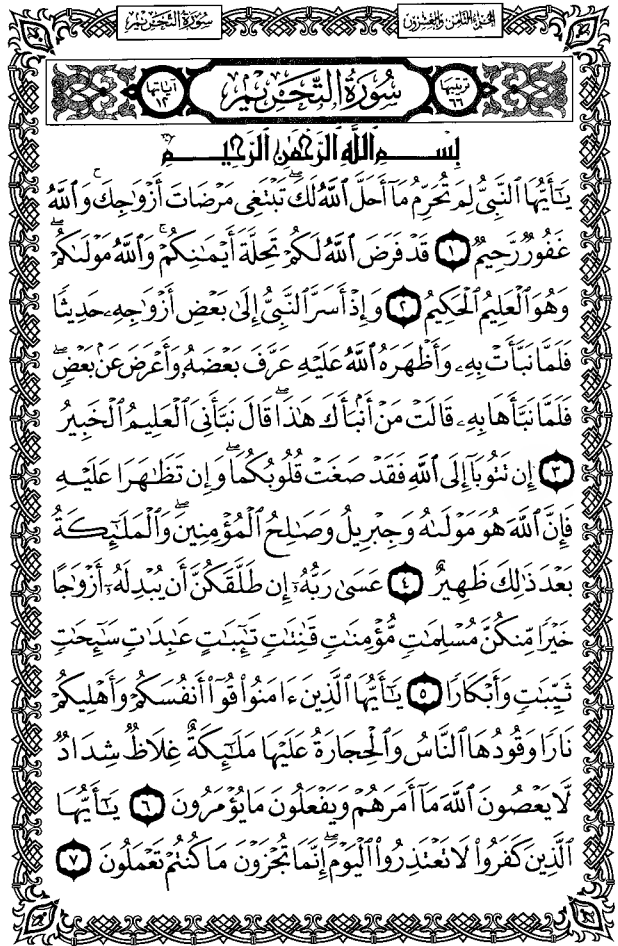 الجزء الثامن والعشرون
سورة التحريم
ترتيبها ٦٦
سُورَةُ التَّحْرِيمِ
آياتها ١٢
بِسْمِ اللَّهِ الرَّحْمَٰنِ الرَّحِيمِ
يَٰٓأَيُّهَا ٱلنَّبِىُّ لِمَ تُحَرِّمُ مَآ أَحَلَّ ٱللَّهُ لَكَۖ تَبْتَغِى مَرْضَاتَ أَزْوَٰجِكَۚ وَٱللَّهُ
غَفُورٌ رَّحِيمٌ ١ قَدْ فَرَضَ ٱللَّهُ لَكُمْ تَحِلَّةَ أَيْمَٰنِكُمْۚ وَٱللَّهُ مَوْلَىٰكُمْۖ
وَهُوَ ٱلْعَلِيمُ ٱلْحَكِيمُ ٢ وَإِذْ أَسَرَّ ٱلنَّبِىُّ إِلَىٰ بَعْضِ أَزْوَٰجِهِۦ حَدِيثًا
فَلَمَّا نَبَّأَتْ بِهِۦ وَأَظْهَرَهُ ٱللَّهُ عَلَيْهِ عَرَّفَ بَعْضَهُۥ وَأَعْرَضَ عَنۢ بَعْضٍۖ
فَلَمَّا نَبَّأَهَا بِهِۦ قَالَتْ مَنْ أَنۢبَأَكَ هَٰذَاۖ قَالَ نَبَّأَنِىَ ٱلْعَلِيمُ ٱلْخَبِيرُ
٣ إِن تَتُوبَآ إِلَى ٱللَّهِ فَقَدْ صَغَتْ قُلُوبُكُمَاۖ وَإِن تَظَٰهَرَا عَلَيْهِ
فَإِنَّ ٱللَّهَ هُوَ مَوْلَىٰهُ وَجِبْرِيلُ وَصَٰلِحُ ٱلْمُؤْمِنِينَۖ وَٱلْمَلَٰٓئِكَةُ
بَعْدَ ذَٰلِكَ ظَهِيرٌ ٤ عَسَىٰ رَبُّهُۥٓ إِن طَلَّقَكُنَّ أَن يُبْدِلَهُۥٓ أَزْوَٰجًا
خَيْرًا مِّنكُنَّ مُسْلِمَٰتٍ مُّؤْمِنَٰتٍ قَٰنِتَٰتٍ تَٰٓئِبَٰتٍ عَٰبِدَٰتٍ سَٰٓئِحَٰتٍ
ثَيِّبَٰتٍ وَأَبْكَارًا ٥ يَٰٓأَيُّهَا ٱلَّذِينَ ءَامَنُوا۟ قُوٓا۟ أَنفُسَكُمْ وَأَهْلِيكُمْ
نَارًا وَقُودُهَا ٱلنَّاسُ وَٱلْحِجَارَةُ عَلَيْهَا مَلَٰٓئِكَةٌ غِلَاظٌ شِدَادٌ
لَّا يَعْصُونَ ٱللَّهَ مَآ أَمَرَهُمْ وَيَفْعَلُونَ مَا يُؤْمَرُونَ ٦ يَٰٓأَيُّهَا
ٱلَّذِينَ كَفَرُوا۟ لَا تَعْتَذِرُوا۟ ٱلْيَوْمَۖ إِنَّمَا تُجْزَوْنَ مَا كُنتُمْ تَعْمَلُونَ ٧